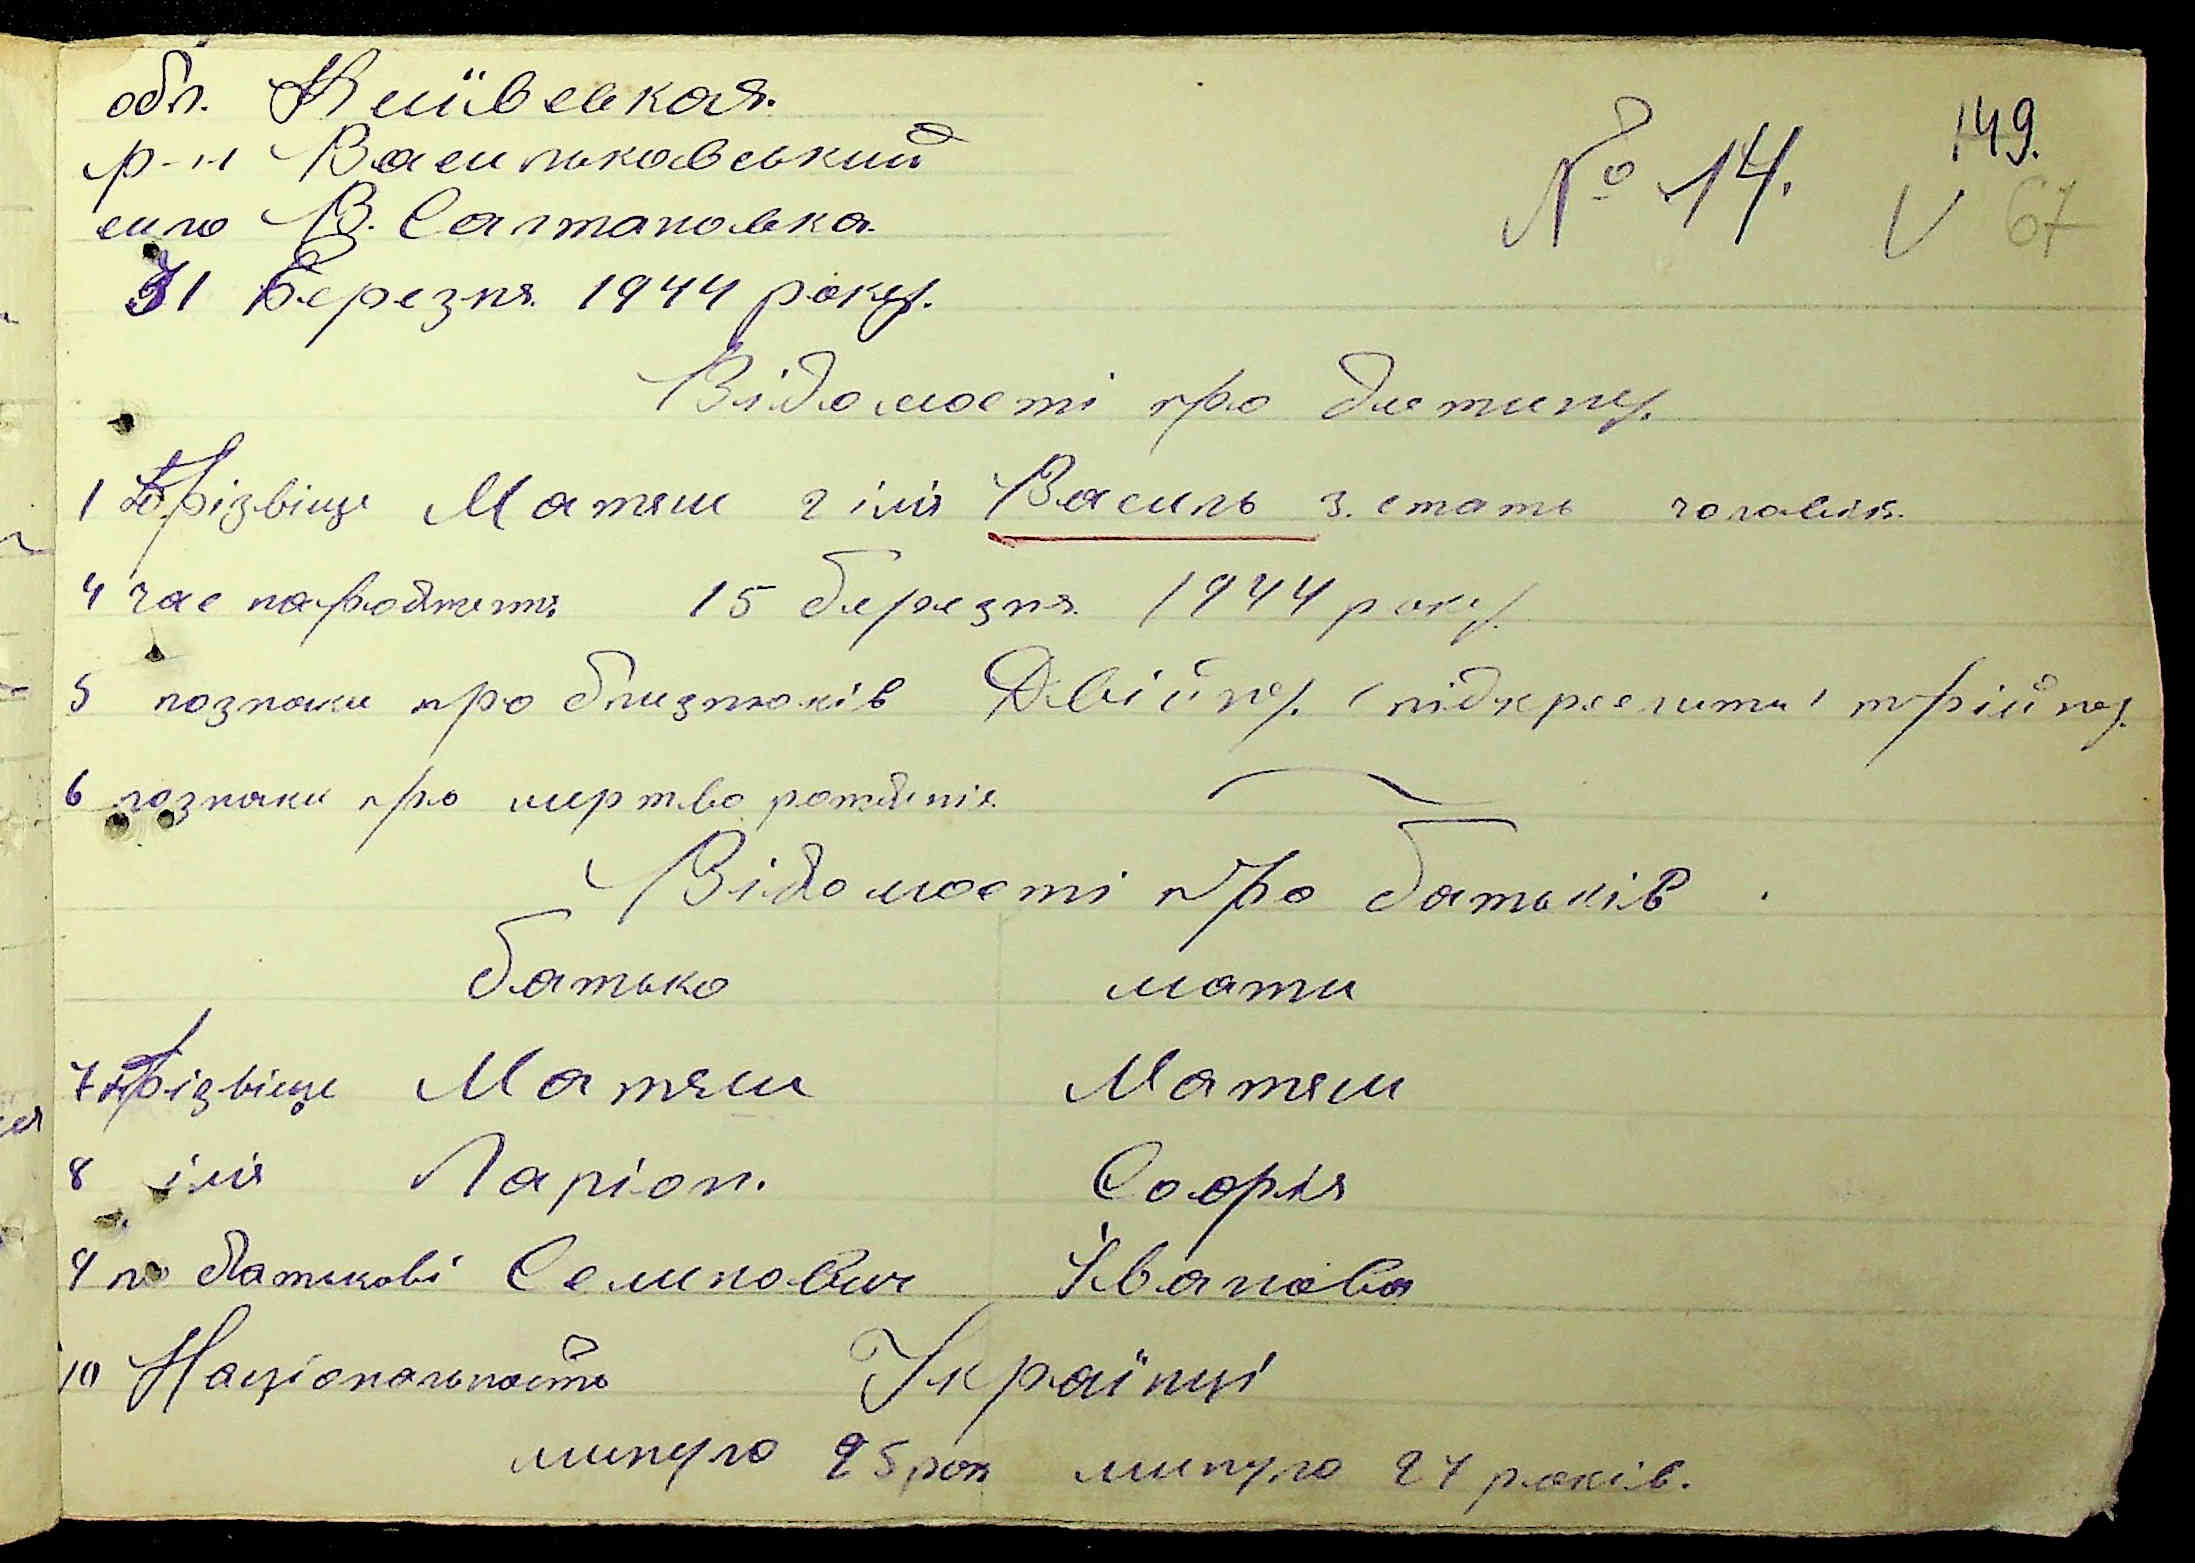 обл. Київська.
р-н Васильковський
село В. Салтановка.
№ 14. 149.
67
31 березня 1944 року.
Відомості про дитину.
1 Прізвіще Матяш 2 імя Василь 3. стать чоловік.
4 час народження 15 березня 1944 року.
5 познаки про близнюків Двійну. (підкреслити) трійну.
6 познаки про мертво
Відомості про батьків
батько мати
7 Прізвіще Матяш Матяш
8 імя Ларіон. Софія
9 по батькові Семенович Іванова
10 Національность Українці
минуло 25 рок минуло 24 років.